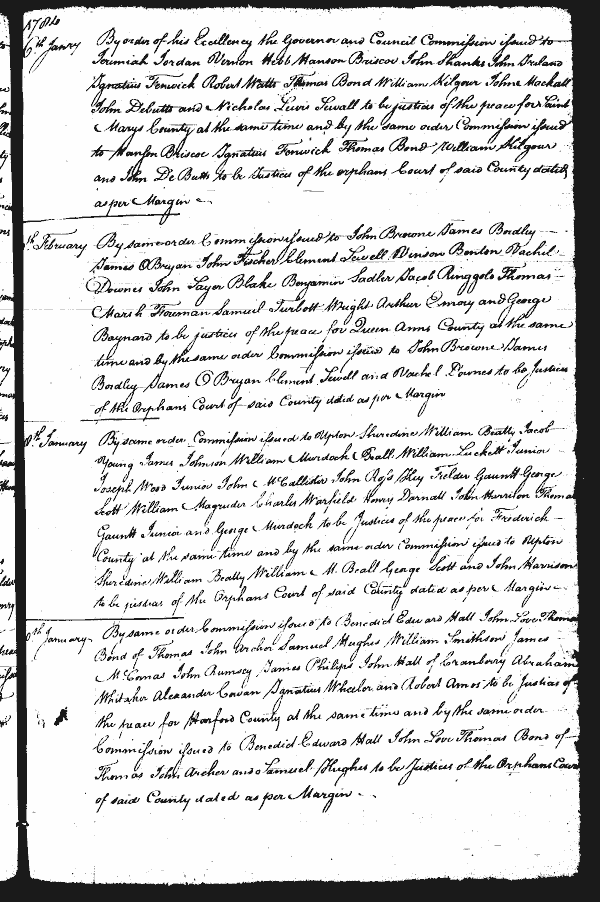 1784
6th Janry By order of his Excellency the Governor and Council Commission issued to
Jeremiah Jordan Vernon Hebb Hanson Briscoe John Shanks John Ireland
Ignatius Fenwick Robert Watts Thomas Bond William Kilgour John Mackall
John Debutts and Nicholas Lewis Sewall to be justices of the peace for Saint
Marys County at the same time and by the same order Commission issued
to Hanson Briscoe Ignatius Fenwick Thomas Bond William Kilgour
and John DeButts to be Justices of the orphans Court of said County dated
as per Margin
th February By same order Commission issued to John Browne James Bordley
James OBryan John Fischer Clement Sewell Vinson Benton Vachel
Downes John Sayer Blake Benjamin Sadler Jacob Ringgold Thomas
Marsh Foreman Samuel Turbott Wright Arthur Emory and George
Baynard to be justices of the peace for Queen Anns County at the same
time and by the same order Commission issued to John Browne James
Bordley James O Bryan Clement Sewell and Vachel Downes to be Justices
of the Orphans Court of said County dated as per Margin
8th January By same order Commission issued to Upton Sheredine William Beatty Jacob
Young James Johnson William Murdock Beall William Luckett Junior
Joseph Wood Junior John McCallister John Ross Key Fielder Gauntt George
Scott William Magruder Charles Warfield Henry Darnall John Harrison Thomas
Gauntt Junior and George Murdoch to be Justices of the peace for Frederick
County at the same time and by the same order Commission issued to Upton
Sheredine William Beatty William M. Beall George Scott and John Harrison
to be justices of the Orphans Court of said County dated as per Margin
th January By same order Commission issued to Benedict Edward Hall John Love Thomas
Bond of Thomas John Archer Samuel Hughes William Smithson James
McComas John Rumsey James Philips John Hall of Cranberry Abraham
Whitaker Alexander Cowan Ignatius Wheeler and Robert Amos to be Justices of
the peace for Harford County at the same time and by the same order
Commission issued to Benedict Edward Hall John Love Thomas Bond of
Thomas John Archer and Samuel Hughes to be Justices of the Orphans Court
of said County dated as per Margin